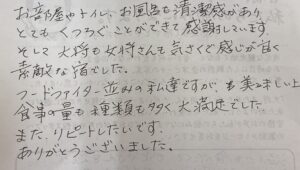 お部屋やトイレ、お風呂も清潔感があり
とてもくつろぐことができて感謝しています
そして大将も女将さんも気さくで感じが良く
素敵な宿でした。
フードファイター並みの私達ですが、お美味しい上
食事の量も種類も多く大満足でした。
また、リピートしたいです。
ありがとうございました。